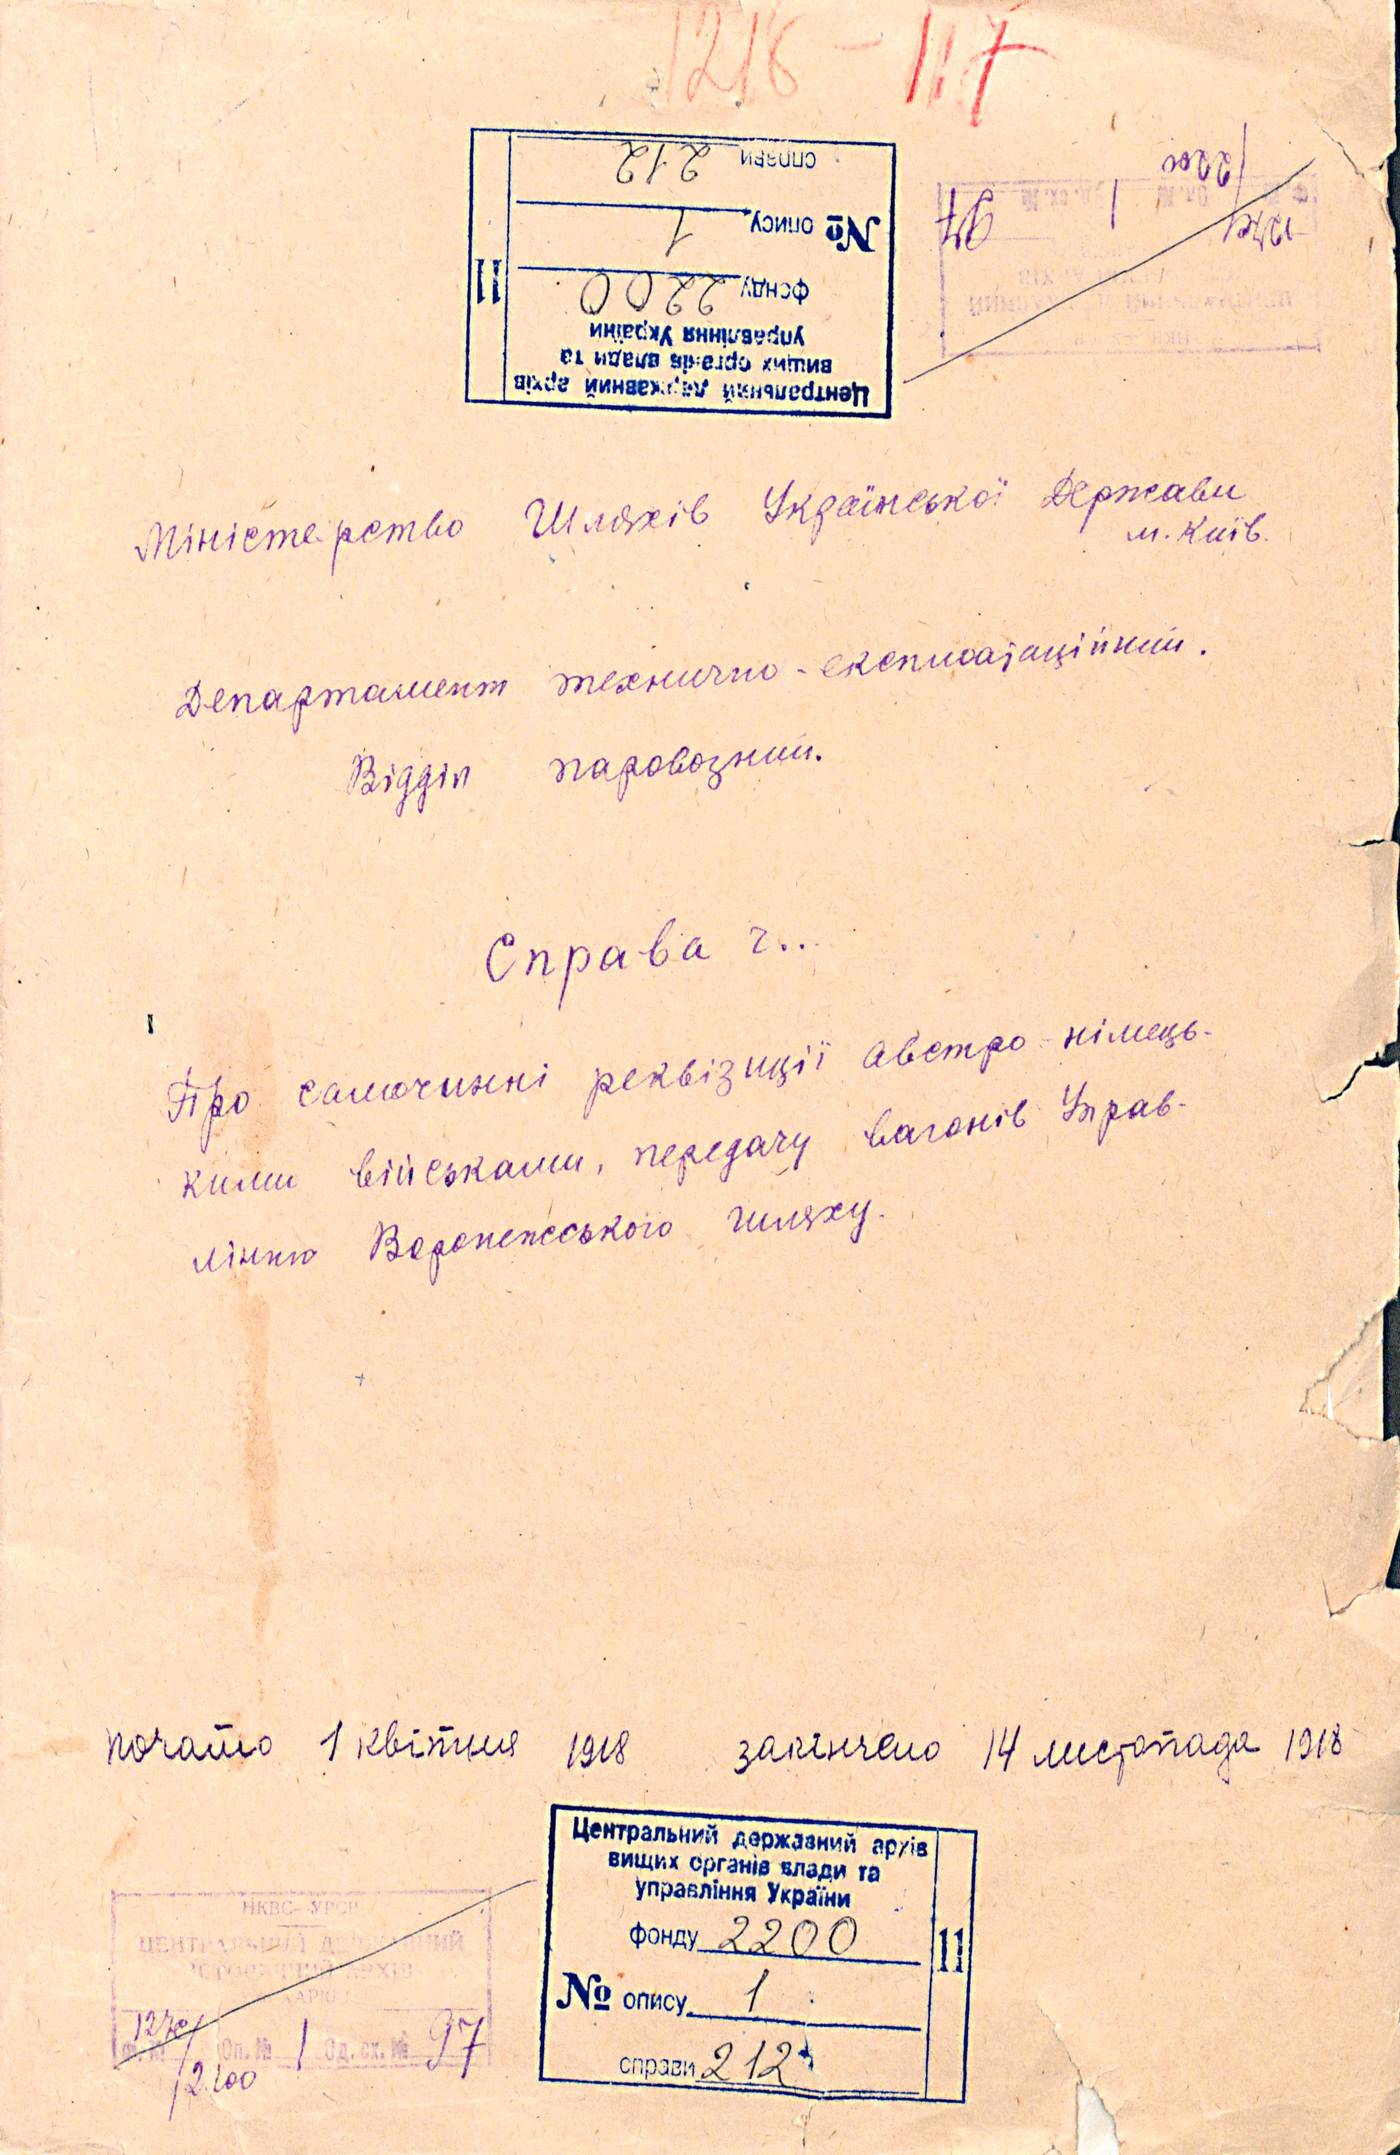 1216 - 117
справи 212
№ опису 1
фонду 2200
11
Центральний державний архів
вищих органів влади та
управління України
97
2200
Міністерство Шляхів Української Держави
м. Київ.
Департамент технично-експлоатаційний.
Відділ паровозний.
Справа ч...
Про самочинні реквізиції австро-німець-
кими військами, передачу вагонів Управ-
лінню Воронежського шляху.
почато 1 квітня 1918 закінчено 14 листопада 1918
Центральний державний архів
вищих органів влади та
управління України
фонду 2200
№ опису 1
справи 212
11
НКВС-УРСР
ЦЕНТРАЛЬНИЙ ДЕРЖАВНИЙ
ІСТОРИЧНИЙ АРХІВ
Оп. № 1 Од. сх. № 97
2200